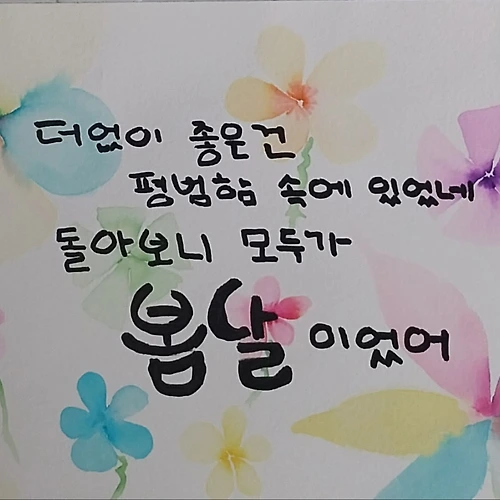 더없이 좋은건
평범함 속에 있었네
돌아보니 모두가
봄날 이었어